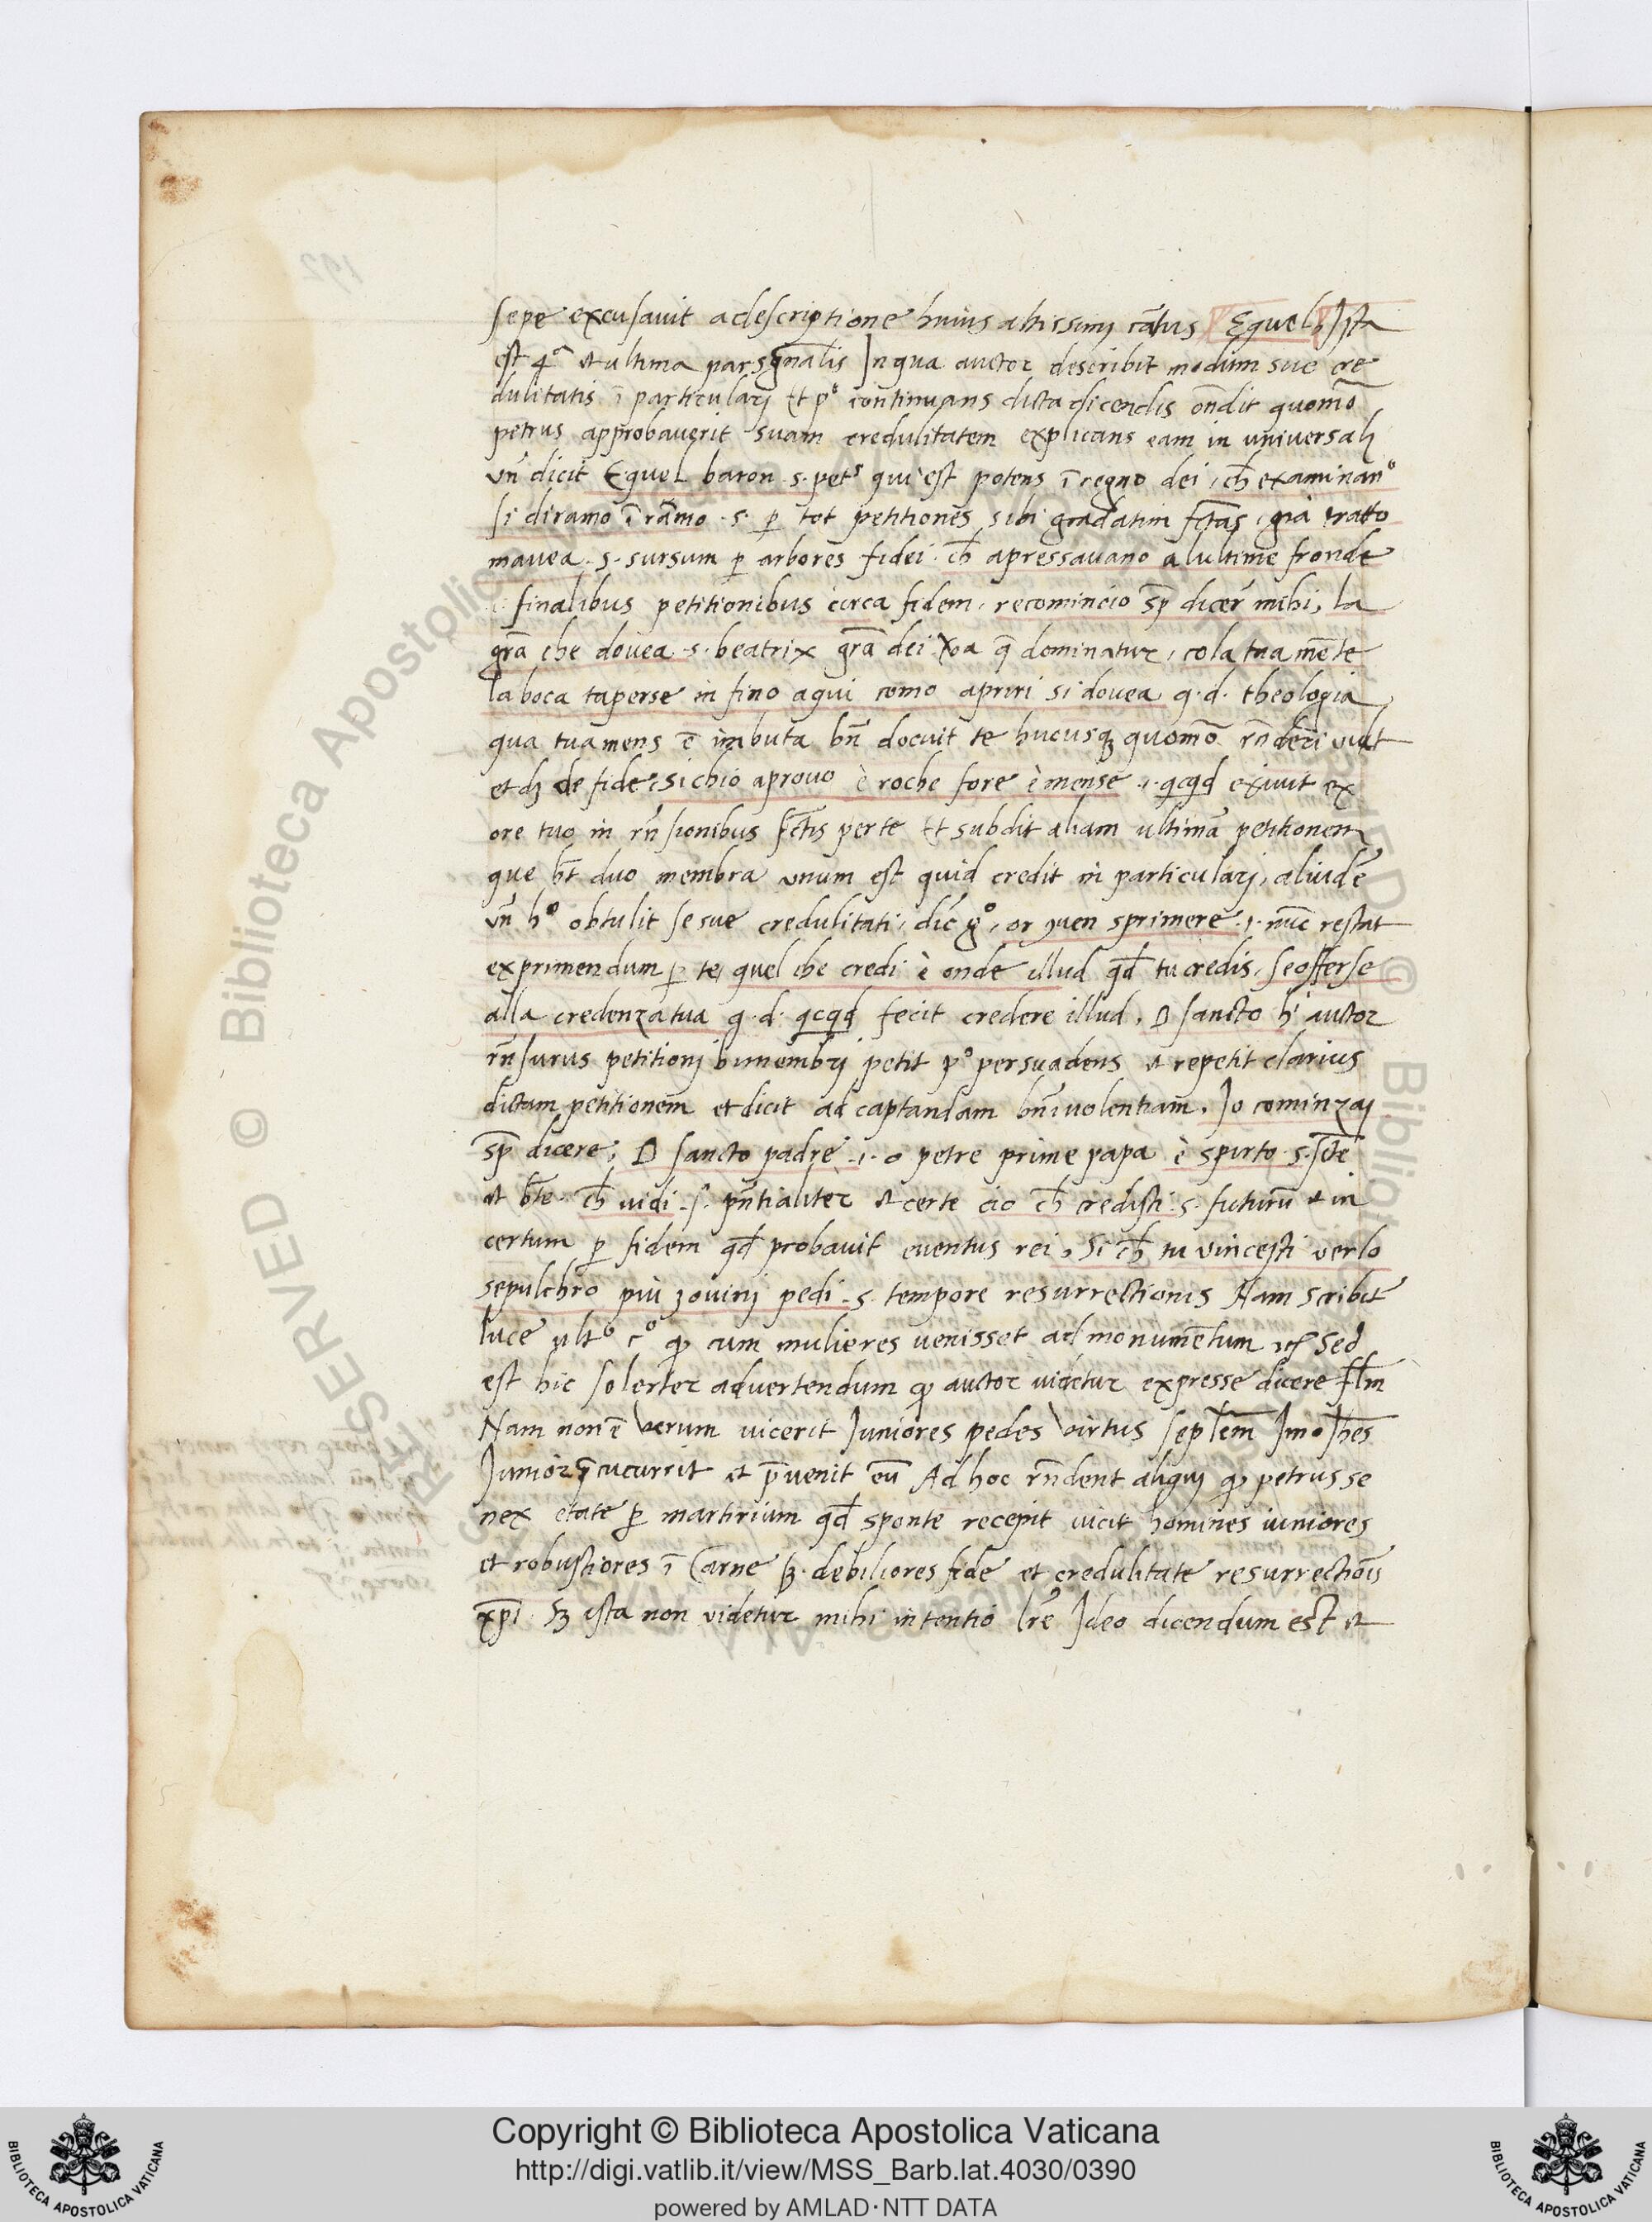 sepe excusavit a descriptione huius altissimi cãtus Equel b Ista
est 4ᵃ et ultima pars gñalis In qua auctor describit modum sue cre
dulitatis ĩ particularj Et pº continuans dicta dicendis oñdit quomõ
petrus approbaverit suam credulitatem explicans eam in universalj
vñ dicit Equel baron .s. petˢ qui est potens ĩ regno dei, ch̄ examinanº
si di ramo ĩ ramo .s. p̱ tot petitiones sibi gradatim fctãs, già tratto
mavea .s. sursum p̱ arbores fidei. ch̄ apressavano a lultime fronde
finalibus petitionibus circa fidem, recomincio sp̄ dicer̃ mihi, la
grã che dovea .s. beatrix grã dei q̃ dominatur, cola tua mẽte
la boca taperse in fino a qui como apriri si dovea q.d. theologia
qua tua mens ẽ imbuta bñ docuit te hucusqȝ quomõ rñderi vult
et dȝ de fide, si chio aprovo è roche fore è mense .i. qcqd exivit ex
ore tuo in rñsionibus fctis per te Et subdit aliam ultimã petitionem
que ht̄ duo membra unum est quid credit in particularj, aliud ẽ
vñ hº obtulit se sue credulitati, dic̃ gº, or ꝯven sprimere .i. nũc restat
exprimendum p̱ te, quel che credi è onde illud qd̄ tu credis, se offerse
alla credenza tua q.d. qcqd fecit credere illud. O sancto hⁱ auctor
rñsurus petitionj bimembrj petit pº persuadens et repetit clarius
dictam petitionem et dicit ad captandam bñivolentiam. Io cominzaj
sp̄ dicere, O sancto padre .i. o petre prime papa è spirto .s. scte
et bt̃e. ch̄ vidi .s. pñtialiter et certe cio ch̄ credisti .s. futurũ et in
certum p̱ fidem qd̄ probavit eventus rei, Si ch̄ tu vincesti ver lo
sepulchro più zovinj pedi .s. tempore resurrectionis Nam scribit
luce ultº cº qꝫ cum mulieres venisset ad monumẽtum etc Sed
est hic solerter advertendum qꝫ auctor videtur expresse dicere flm
Nam non ẽ verum vicerit Juniores pedes virtus seplcm Imo Jhes
Junior p̃cucurrit et p̃venit eũ Ad hoc rñdent aliquj qꝫ petrus se
nex etate p̱ martirium qd̄ sponte recepit vicit homines iuniores
et robustiores ĩ Carne sȝ. debiliores fide et credulitate resurrectiõis
xp̄i. Sȝ ista non videtur mihi intentio lr̃e Ideo dicendum est et
Copyright © Biblioteca Apostolica Vaticana
http://digi.vatlib.it/view/MSS_Barb.lat.4030/0390
powered by AMLAD·NTT DATA